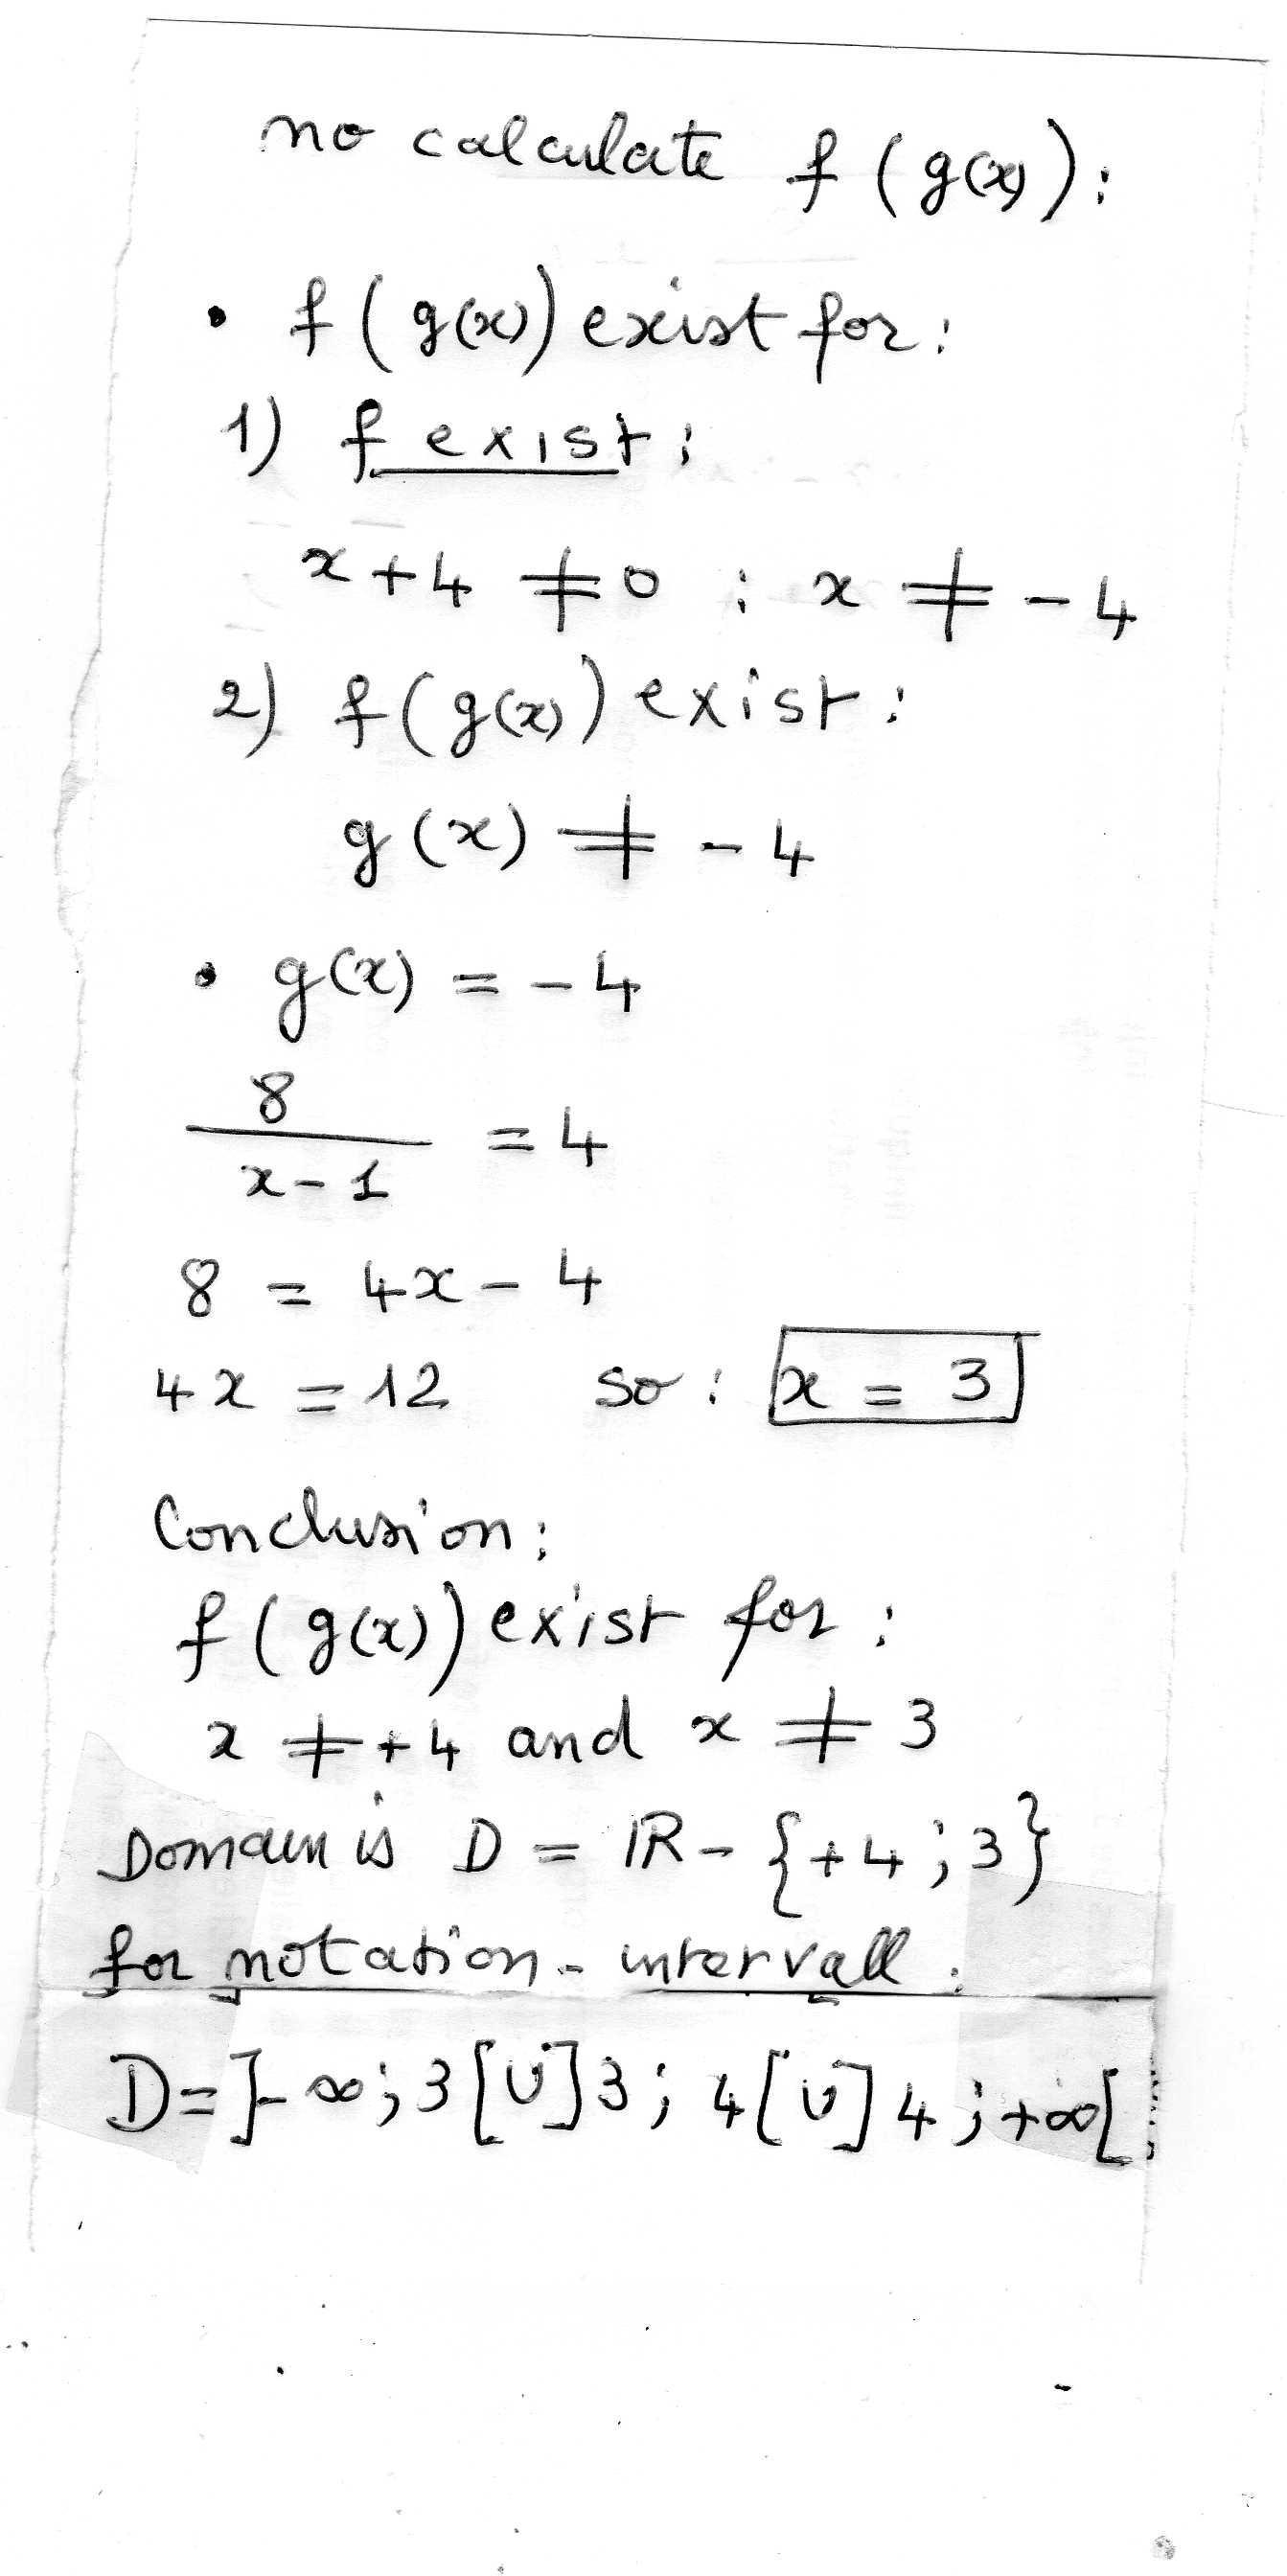 no calculate f(g(x)):
• f(g(x)) exist for:
1) f exist:
x+4 ≠ 0 : x ≠ -4
2) f(g(x)) exist:
g(x) ≠ -4
• g(x) = -4
8
x-1 = 4
8 = 4x - 4
4x = 12 so: x = 3
Conclusion:
f(g(x)) exist for:
x ≠ +4 and x ≠ 3
Domain is D = IR - {+4;3}
for notation-intervall:
D=]-∞;3[U]3;4[U]4;+∞[